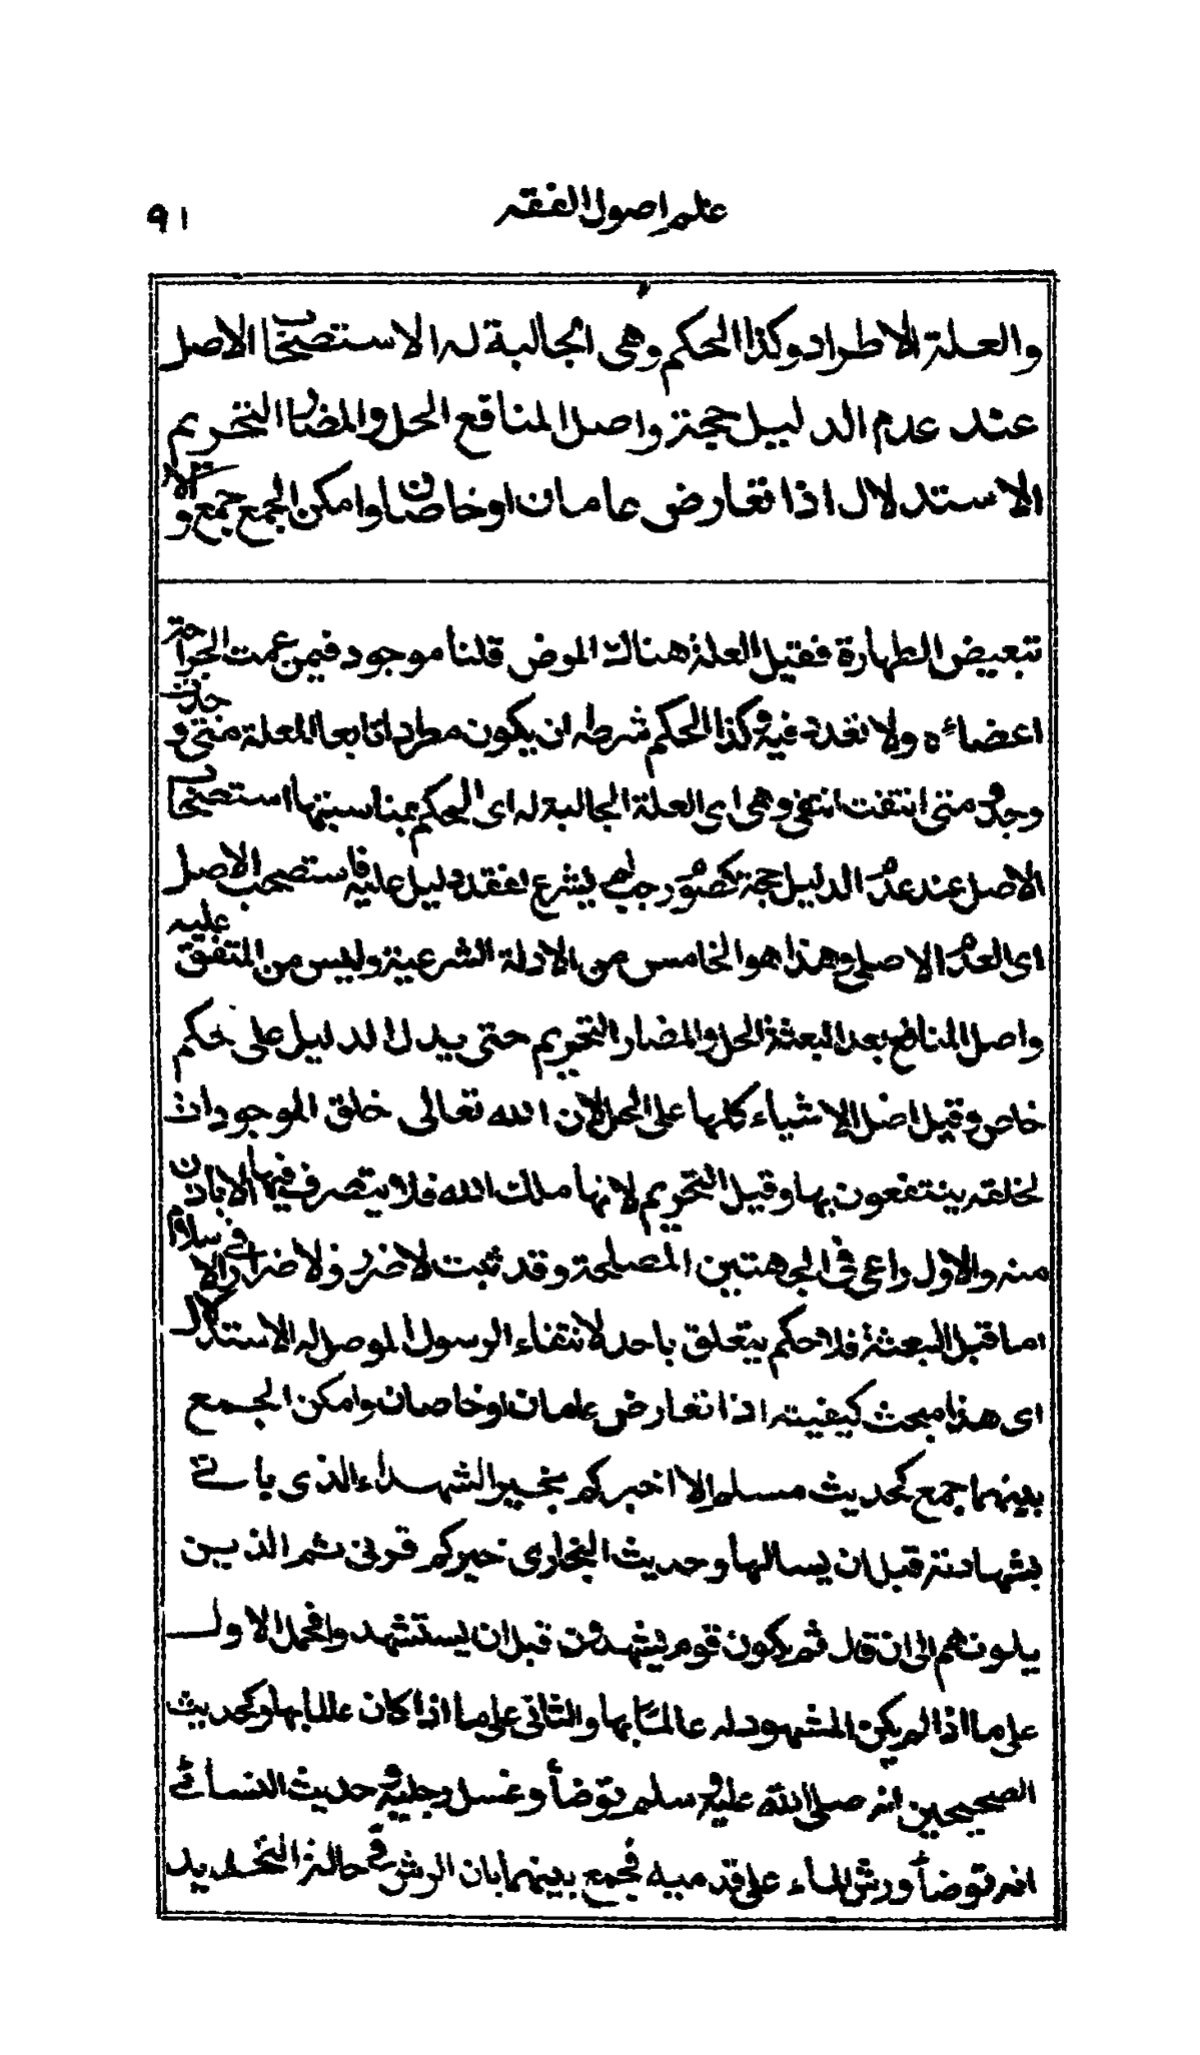 علم اصول الفقه
٩١
والعلة الاطراد وكذا الحكم وهى الجالبة له الاستصحاب الاصل
عند عدم الدليل حجة واصل المنافع الحل والمضار التحريم
الاستدلال اذا تعارض عامان او خاصان وامكن الجمع جمع والا
تبعيض الطهارة فقيل العلة هناك المرض قلنا موجود فيمن عمت الجراحة
اعضاءه ولا تعدد فيه وكذا الحكم شرطه ان يكون مطردا تابعا للعلة متى وجدت
وجد ومتى انتفت انتفى وهى اى العلة الجالبة له اى الحكم بمناسبتها استصحاب
الاصل عند عدم الدليل حجة كصوم رجب لم يشرع لفقد دليل عليه فاستصحب الاصل
اى العدم الاصلى وهذا هو الخامس من الادلة الشرعية وليس من المتفق عليه
واصل المنافع بعد البعثة الحل والمضار التحريم حتى يدل الدليل على حكم
خاص وقيل اصل الاشياء كلها على الحل لان الله تعالى خلق الموجودات
لخلقه ينتفعون بها وقيل التحريم لانها ملك الله فلا يتصرف فيها الا باذن
منه والاول راعى فى الجهتين المصلحة وقد ثبت لا ضرر ولا ضرار فى الاسلام
اما قبل البعثة فلا حكم يتعلق باحد لانتفاء الرسول الموصل له الاستدلال
اى هذا مبحث كيفيته اذا تعارض عامان او خاصان وامكن الجمع
بينهما جمع كحديث مسلم الا اخبركم بخير الشهداء الذى ياتى
بشهادته قبل ان يسالها وحديث البخارى خيركم قرنى ثم الذين
يلونهم الى ان قال ثم يكون قوم يشهدون قبل ان يستشهدوا فحمل الاول
على ما اذا لم يكن المشهود له عالما بها والثانى على ما اذا كان عالما بها وكحديث
الصحيحين انه صلى الله عليه وسلم توضأ وغسل رجليه وحديث النسائى
انه توضأ ورش الماء على قدميه فجمع بينهما بان الرش فى حالة التجديد